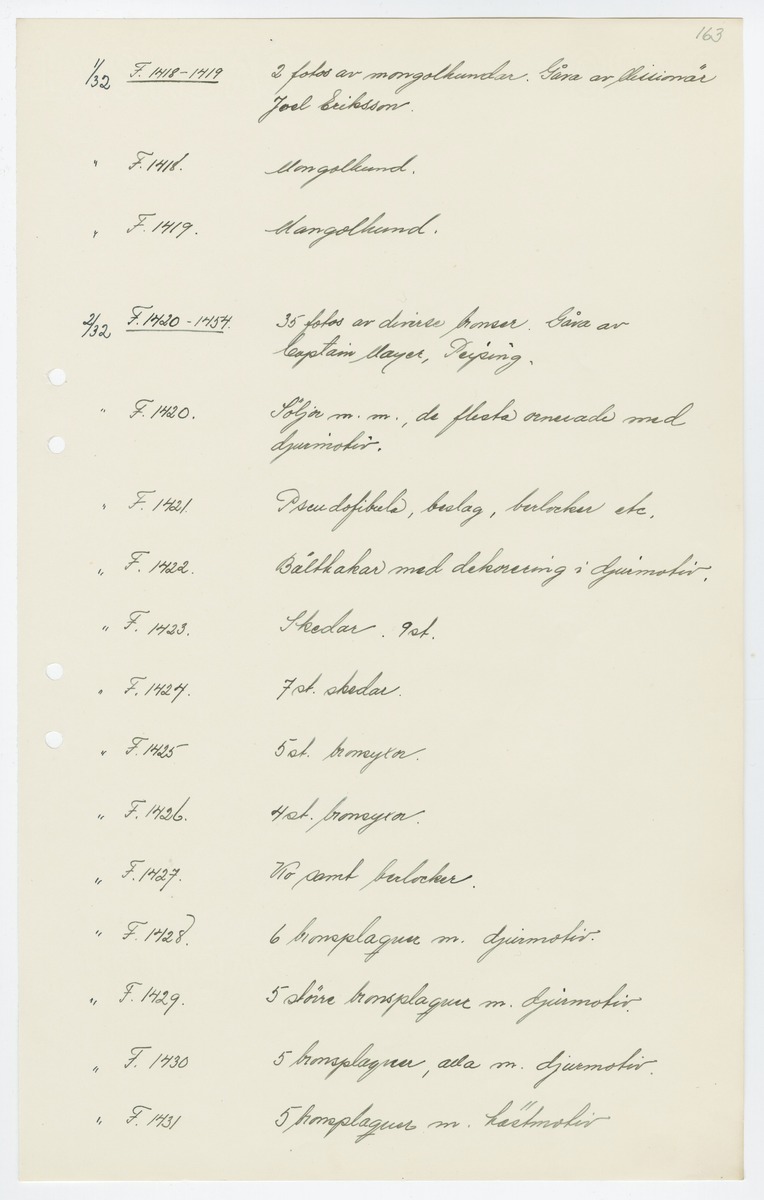 163
1/32 F. 1418-1419 2 fotos av mongolhundar. Gåva av Missionär
Joel Eriksson.
" F. 1418. Mongolhund.
" F. 1419. Mongolhund.
2/32 F. 1420-1454. 35 fotos av diverse bronser. Gåva av
Captain Mayer, Peiping.
" F. 1420. Söljor m. m., de flesta ornerade med
djurmotiv.
" F. 1421. Pseudofibula, beslag, berlocker etc.
" F. 1422. Bälthakar med dekorering i djurmotiv.
" F. 1423. Skedar. 9 st.
" F. 1424. 7 st. skedar.
" F. 1425 5 st. bronsyxor.
" F. 1426. 4 st. bronsyxor.
" F. 1427. samt berlocker.
" F. 1428. 6 bronsplaquer m. djurmotiv.
" F. 1429. 5 större bronsplaquer m. djurmotiv.
" F. 1430 5 bronsplaquer, alla m. djurmotiv.
" F. 1431 5 bronsplaquer m. hästmotiv